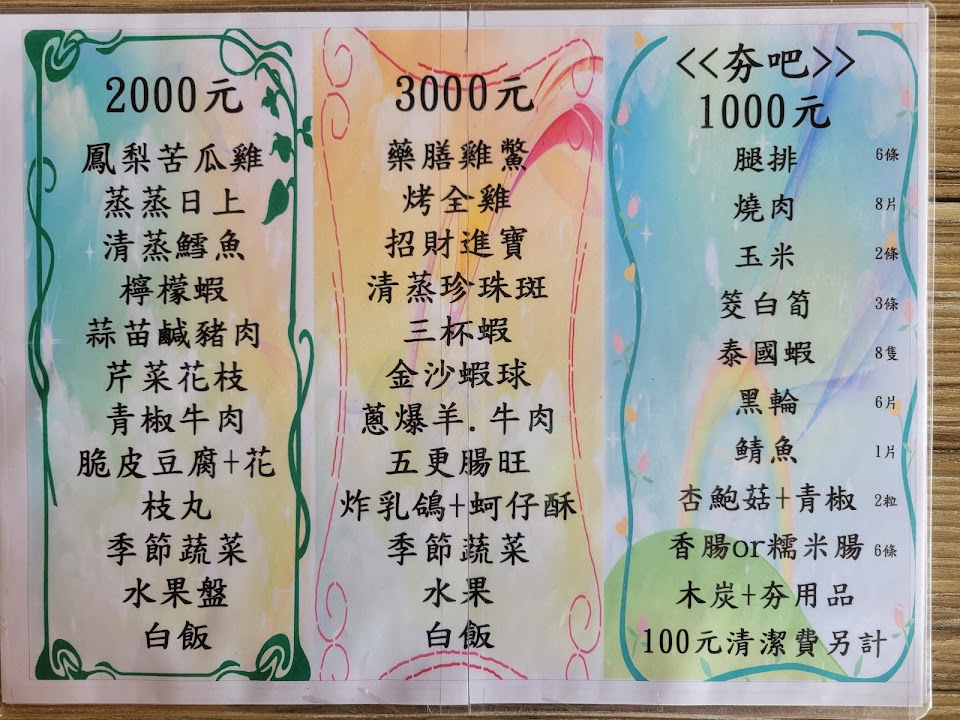 2000元
鳳梨苦瓜雞
蒸蒸日上
清蒸鱈魚
檸檬蝦
蒜苗鹹豬肉
芹菜花枝
青椒牛肉
脆皮豆腐+花
枝丸
季節蔬菜
水果盤
白飯
3000元
藥膳雞鱉
烤全雞
招財進寶
清蒸珍珠斑
三杯蝦
金沙蝦球
蔥爆羊.牛肉
五更腸旺
炸乳鴿+蚵仔酥
季節蔬菜
水果
白飯
<<夯吧>>
1000元
腿排 6條
燒肉 8片
玉米 2條
筊白筍 3條
泰國蝦 8隻
黑輪 6片
鯖魚 1片
杏鮑菇+青椒 2粒
香腸or糯米腸 6條
木炭+夯用品
100元清潔費另計